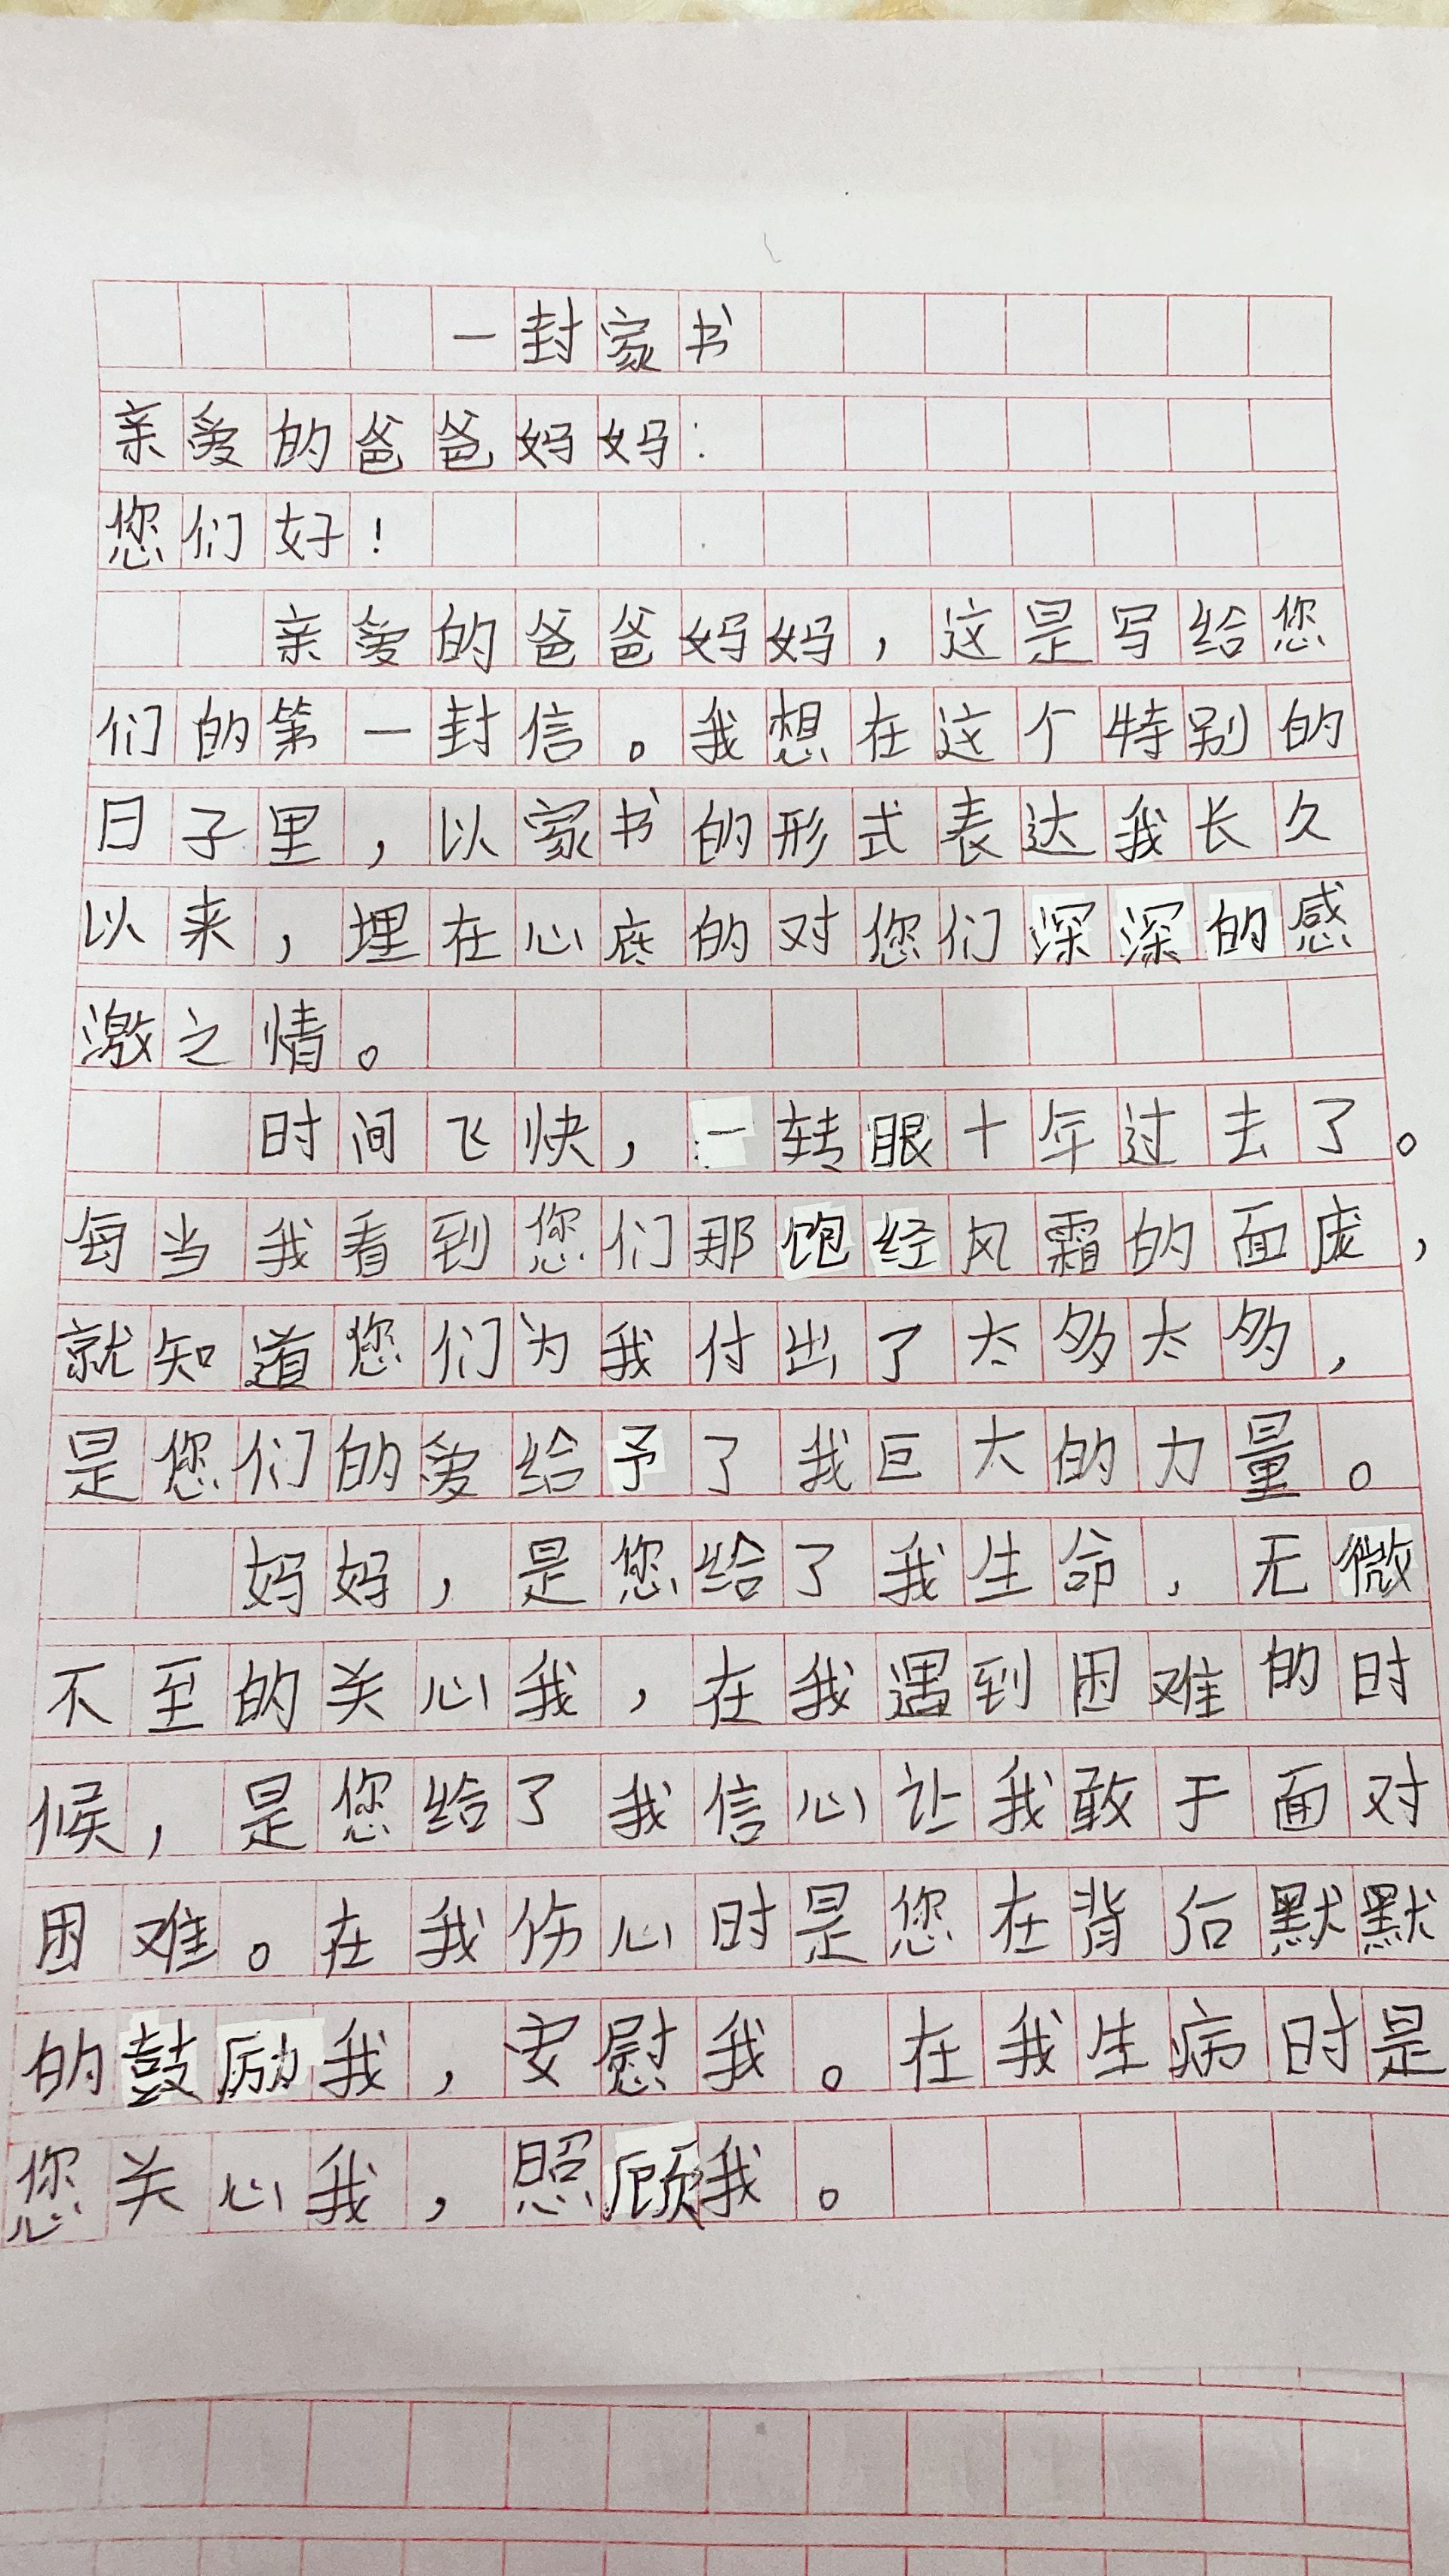 一封家书
亲爱的爸爸妈妈：
您们好！
亲爱的爸爸妈妈，这是写给您
们的第一封信。我想在这个特别的
日子里，以家书的形式表达我长久
以来，埋在心底的对您们深深的感
激之情。
时间飞快，一转眼十年过去了。
每当我看到您们那饱经风霜的面庞，
就知道您们为我付出了太多太多，
是您们的爱给予了我巨大的力量。
妈妈，是您给了我生命，无微
不至的关心我，在我遇到困难的时
候，是您给了我信心让我敢于面对
困难。在我伤心时是您在背后默默
的鼓励我，安慰我。在我生病时是
您关心我，照顾我。